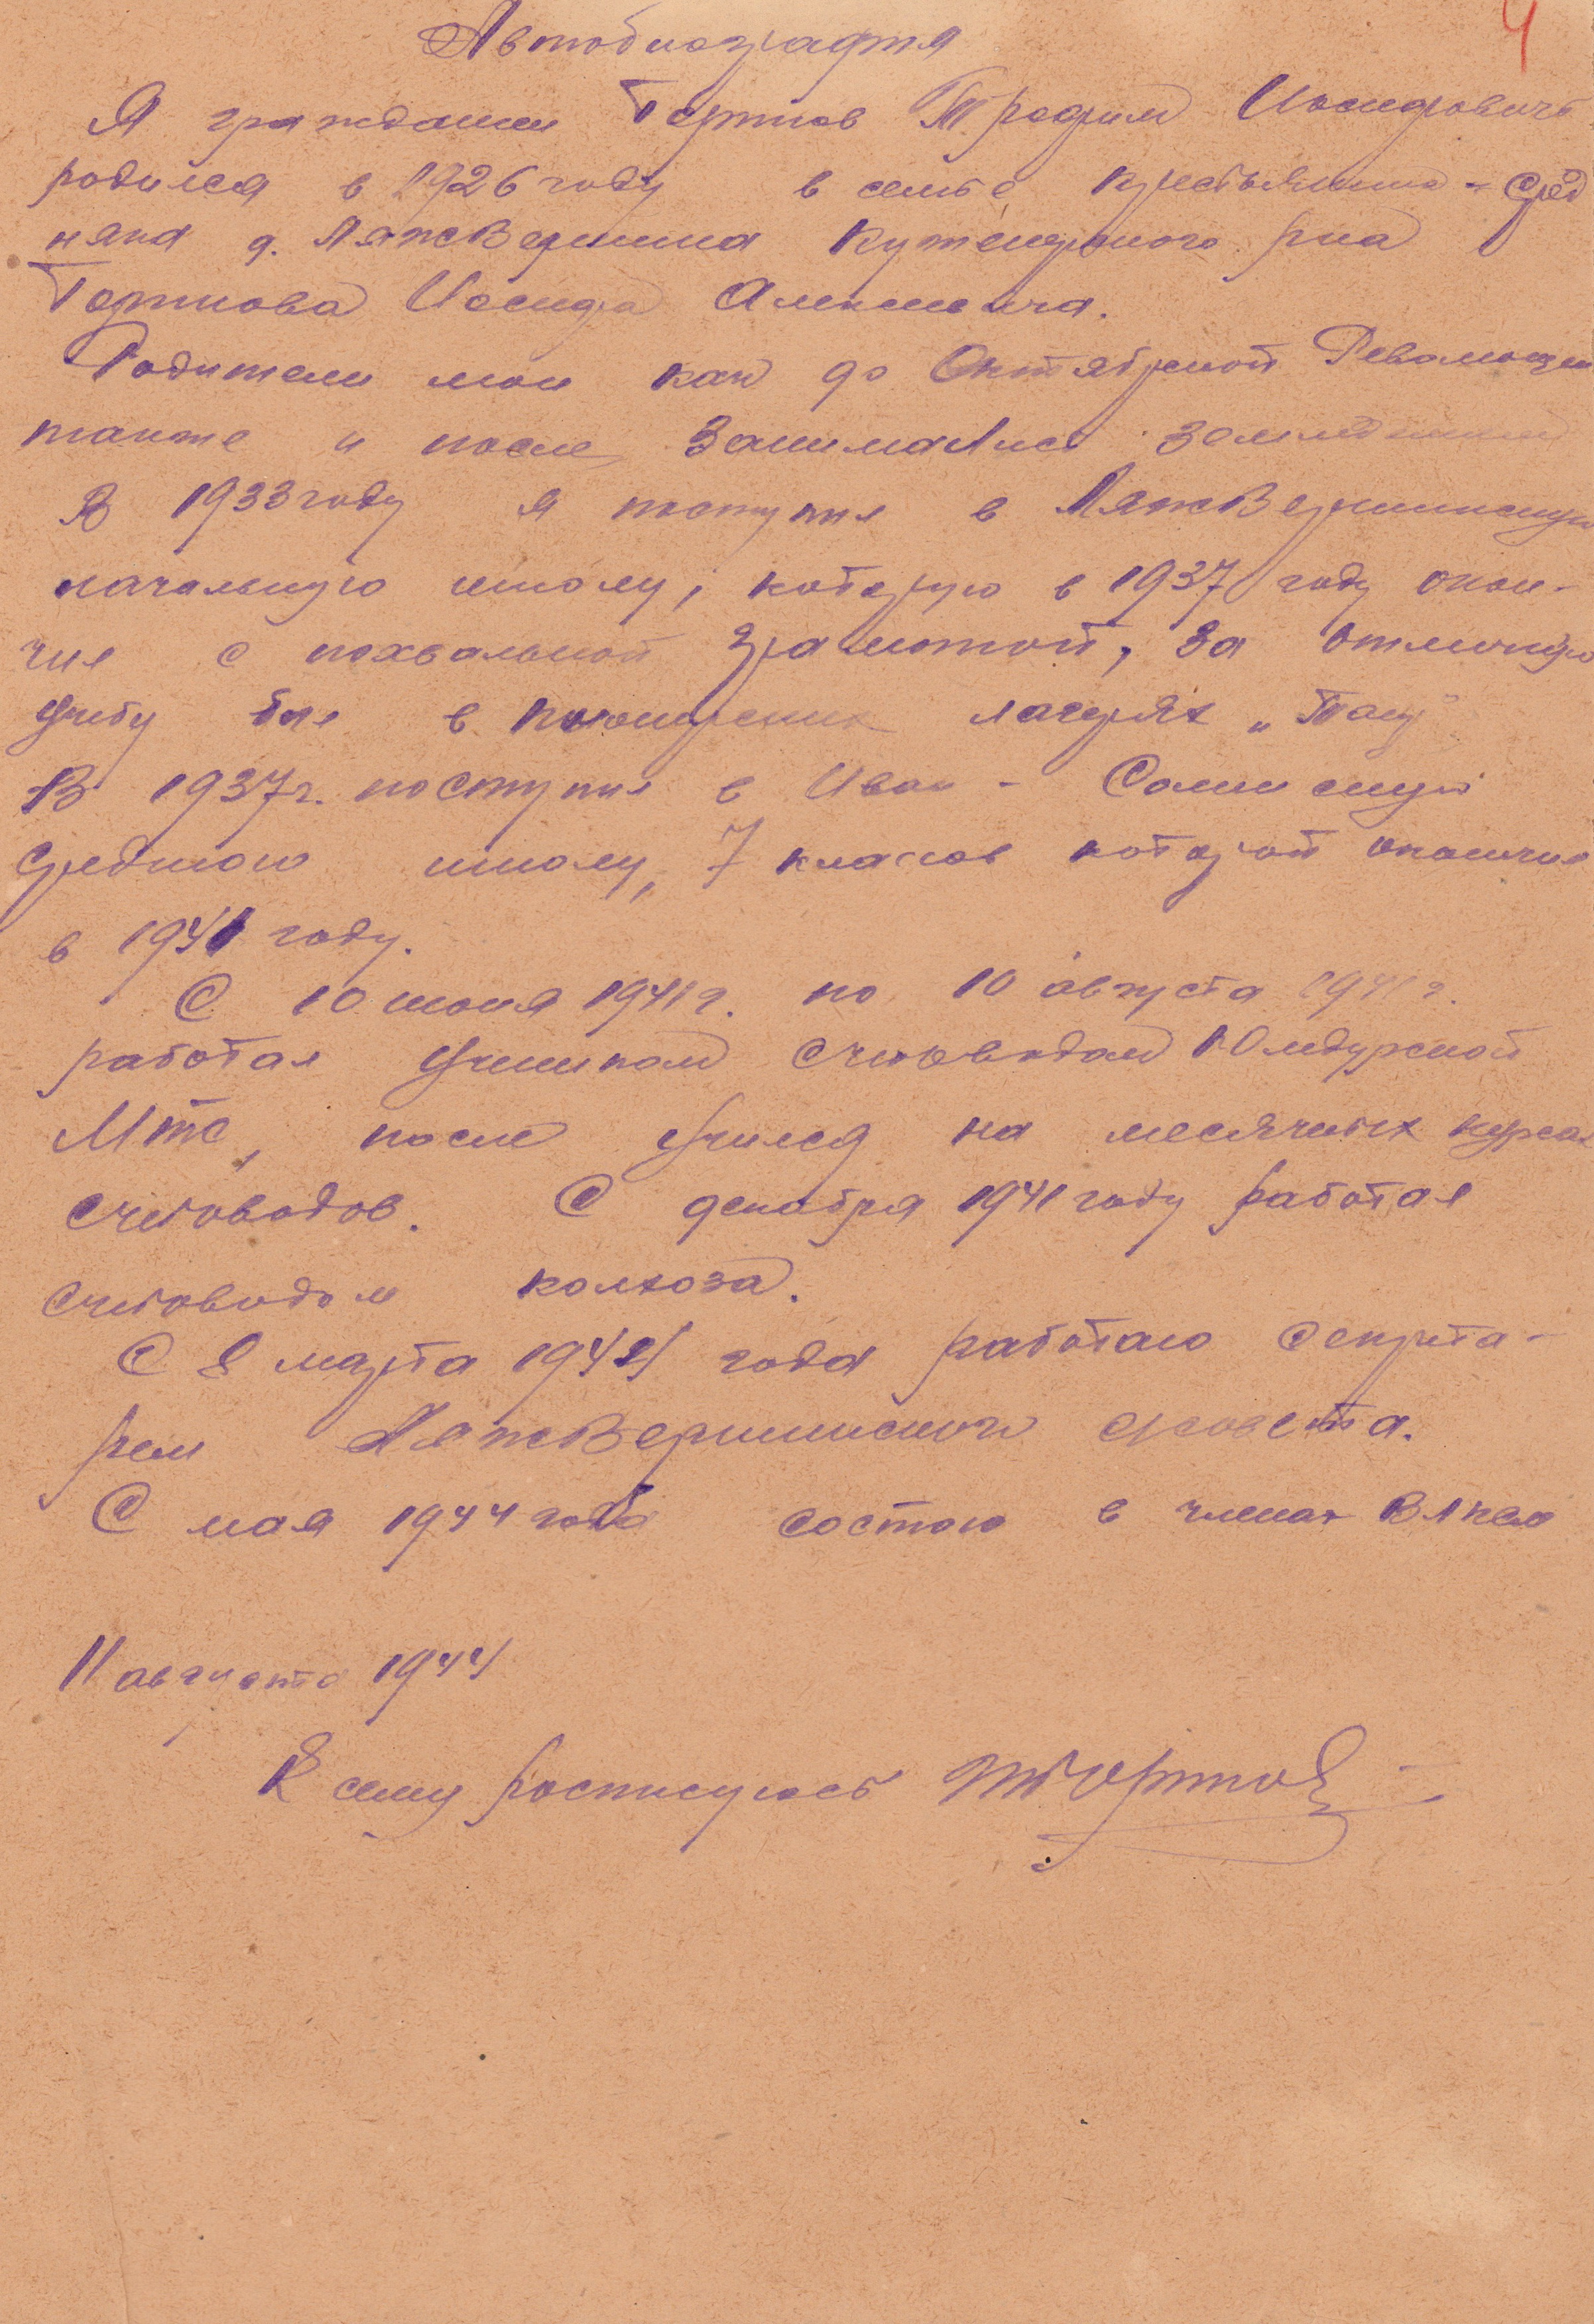 4
Автобиография
Я гражданин Гортнов Трофим Иосифович
родился в 1926 году в семье крестьянина - серед
няка д. Ляжвершина Куженерского р-на
Гортнова Иосифа Алексеевича.
Родители мои как до Октябрской Революции
также и после занимались земледелием
В 1933 году я поступил в Ляжвершинскую
начальную школу, которую в 1937 году окон-
чил с похвальной грамотой, за отличную
учебу был в пионерских лагерях „Таир"
В 1937 г. поступил в Иван - Солинскую
среднюю школу, 7 классов которой окончил
в 1941 году.
С 10 июня 1941 г. по 10 августа 1941 г.
работал учеником счетоводом Юлдурской
МТС, после учился на месячных курсах
счетоводов. С декабря 1941 году работал
счетоводом колхоза.
С 8 марта 1942 года работаю секрета-
рем Ляжвершинского с/совета.
С мая 1944 года состою в членах ВЛКСМ
11 августа 1944
К сему росписуюсь